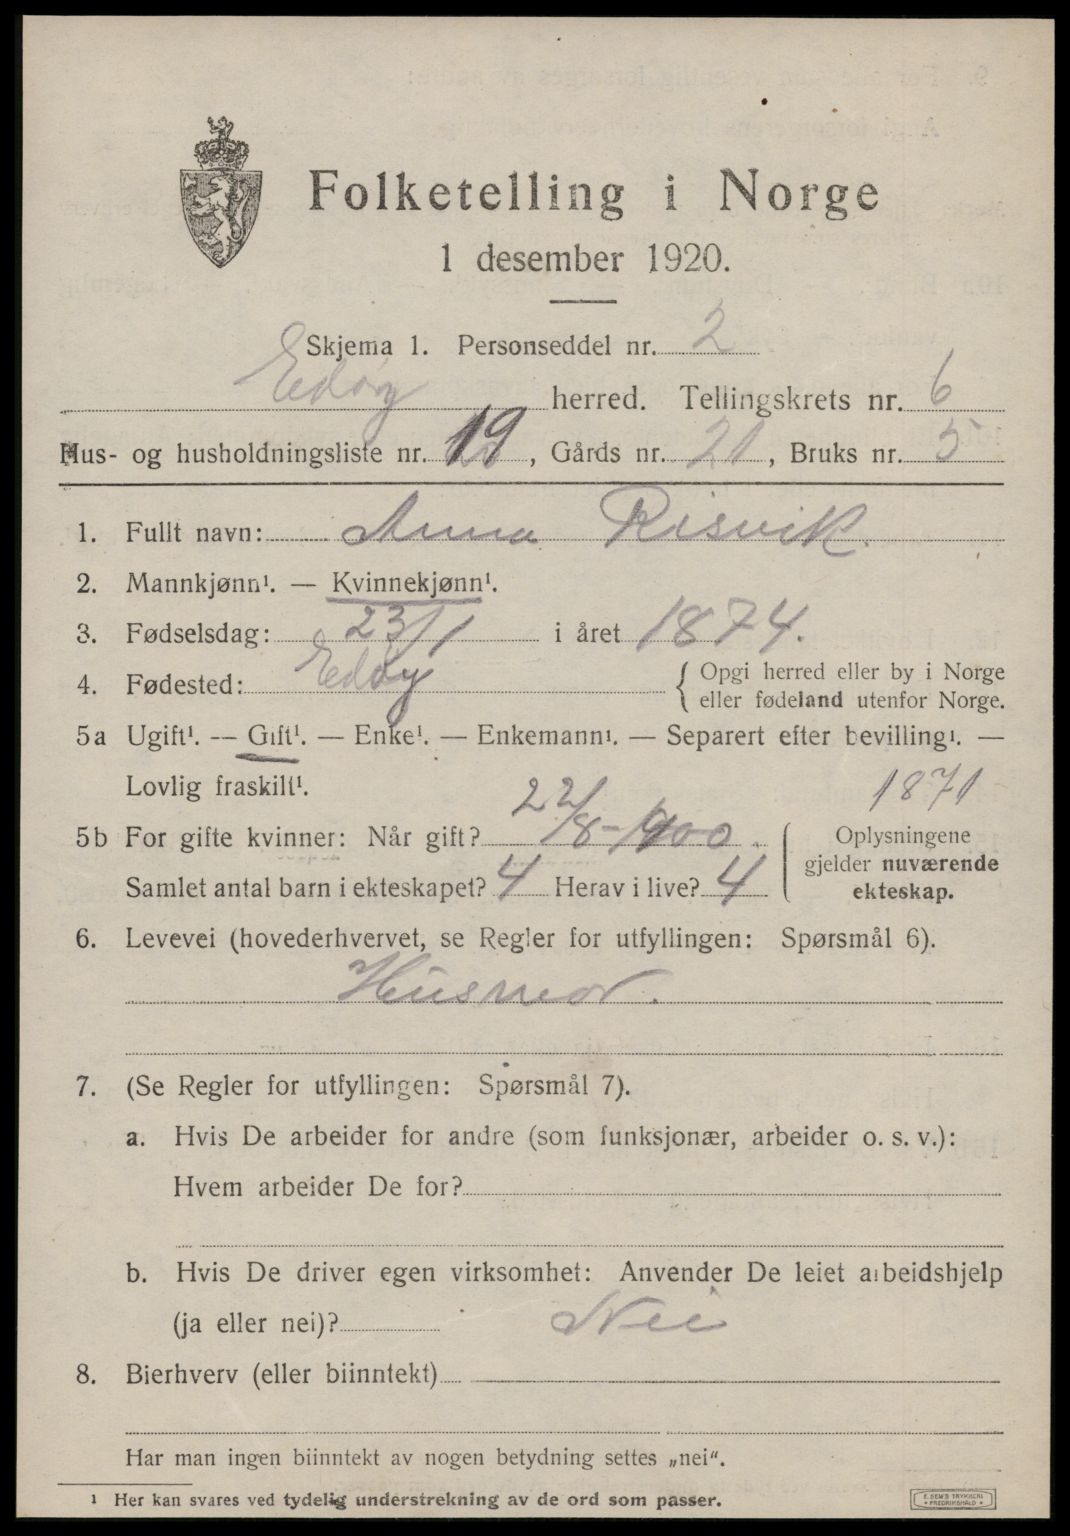 Folketelling i Norge
1 desember 1920.
Skjema 1. Personseddel nr. 2
Edøy herred. Tellingskrets nr. 6
Hus- og husholdningsliste nr. 19, Gårds nr. 21, Bruks nr. 5
1. Fullt navn: Anna Risvik.
2. Mannkjønn¹. — Kvinnekjønn¹.
3. Fødselsdag: 23/1 i året 1874.
4. Fødested: Edøy { Opgi herred eller by i Norge
eller fødeland utenfor Norge.
5a Ugift¹. — Gift¹. — Enke¹. — Enkemann¹. — Separert efter bevilling¹. —
Lovlig fraskilt¹. 1871
5b For gifte kvinner: Når gift? 22/8-1900. { Oplysningene
gjelder nuværende
Samlet antal barn i ekteskapet? 4 Herav i live? 4 ekteskap.
6. Levevei (hovederhvervet, se Regler for utfyllingen: Spørsmål 6).
Husmor.
7. (Se Regler for utfyllingen: Spørsmål 7).
a. Hvis De arbeider for andre (som funksjonær, arbeider o. s. v.):
Hvem arbeider De for?
b. Hvis De driver egen virksomhet: Anvender De leiet arbeidshjelp
(ja eller nei)? Nei
8. Bierhverv (eller biinntekt)
Har man ingen biinntekt av nogen betydning settes „nei".
¹ Her kan svares ved tydelig understrekning av de ord som passer.
E. SEM'S TRYKKERI
• FREDRIKSHALD •